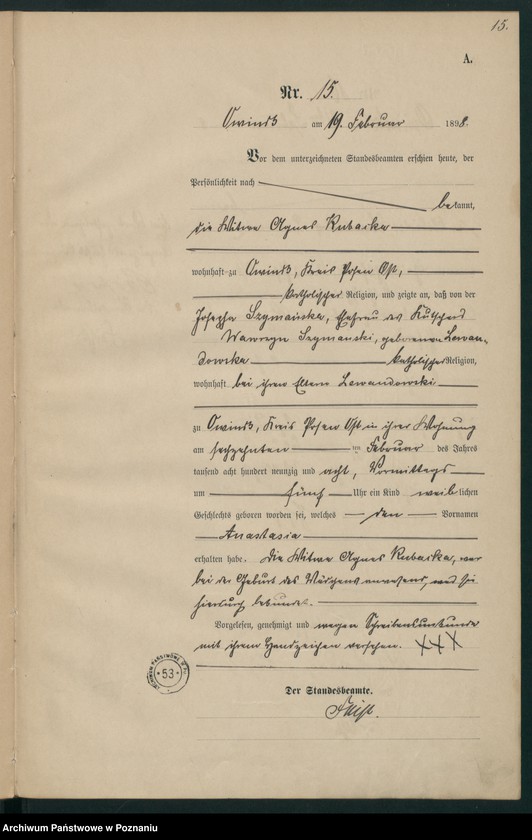 15.
A.
Nr. 15.
Owinsk am 19. Februar 1898.
Vor dem unterzeichneten Standesbeamten erschien heute, der
Persönlichkeit nach
bekannt,
die Witwe Agnes Kubacka
wohnhaft zu Owinsk, Kreis Posen Ost,
katholischer Religion, und zeigte an, daß von der
Josepha Szymańska, Ehefrau des Kutschers
Wawrzyn Szymanski, geborenen Lewan-
dowska katholischer Religion,
wohnhaft bei ihren Eltern Lewandowski
zu Owinsk, Kreis Posen Ost in ihrer Wohnung
am sechzehnten ten Februar des Jahres
tausend acht hundert neunzig und acht, Vormittags
um fünf Uhr ein Kind weiblichen
Geschlechts geboren worden sei, welches den Vornamen
Anastasia
erhalten habe. Die Witwe Agnes Kubacka, war
bei der Geburt des Mädchens anwesend, was sie
hierdurch bekundet.
Vorgelesen, genehmigt und wegen Schreibensunkunde
mit ihrem Handzeichen versehen. XXX
Der Standesbeamte.
53
Archiwum Państwowe w Poznaniu